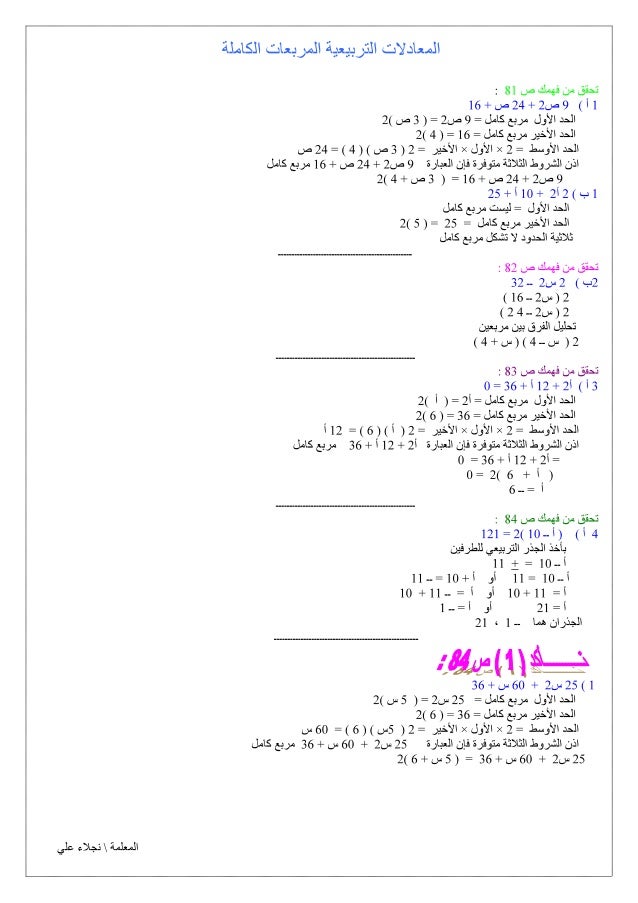 المعادلات التربيعية المربعات الكاملة
تحقق من فهمك ص 81 :
1 أ ) 9 ص2 + 24 ص + 16
الحد الأول مربع كامل = 9 ص2 = ( 3 ص )2
الحد الأخير مربع كامل = 16 = ( 4 )2
الحد الأوسط = 2 × الأول × الأخير = 2 ( 3 ص ) ( 4 ) = 24 ص
اذن الشروط الثلاثة متوفرة فإن العبارة 9 ص2 + 24 ص + 16 مربع كامل
9 ص2 + 24 ص + 16 = ( 3 ص + 4 )2
1 ب ) 2 أ2 + 10 أ + 25
الحد الأول = ليست مربع كامل
الحد الأخير مربع كامل = 25 = ( 5 )2
ثلاثية الحدود لا تشكل مربع كامل
---------------------------------------------------
تحقق من فهمك ص 82 :
2ب ) 2 س2 – 32
2 ( س2 – 16 )
2 ( س2 – 4 2 )
تحليل الفرق بين مربعين
2 ( س – 4 ) ( س + 4 )
---------------------------------------------------
تحقق من فهمك ص 83 :
3 أ ) أ2 + 12 أ + 36 = 0
الحد الأول مربع كامل = أ2 = ( أ )2
الحد الأخير مربع كامل = 36 = ( 6 )2
الحد الأوسط = 2 × الأول × الأخير = 2 ( أ ) ( 6 ) = 12 أ
اذن الشروط الثلاثة متوفرة فإن العبارة أ2 + 12 أ + 36 مربع كامل
= أ2 + 12 أ + 36 = 0
( أ + 6 )2 = 0
أ = – 6
---------------------------------------------------
تحقق من فهمك ص 84 :
4 أ ) ( أ – 10 )2 = 121
بأخذ الجذر التربيعي للطرفين
أ – 10 = + 11
أ – 10 = 11 أو أ + 10 = – 11
أ = 11 + 10 أو أ = – 11 + 10
أ = 21 أو أ = – 1
الجذران هما – 1 ، 21
---------------------------------------------------
تـــأكد ( 1 ) ص 84 :
1 ) 25 س2 + 60 س + 36
الحد الأول مربع كامل = 25 س2 = ( 5 س )2
الحد الأخير مربع كامل = 36 = ( 6 )2
الحد الأوسط = 2 × الأول × الأخير = 2 ( 5س ) ( 6 ) = 60 س
اذن الشروط الثلاثة متوفرة فإن العبارة 25 س2 + 60 س + 36 مربع كامل
25 س2 + 60 س + 36 = ( 5 س + 6 )2
المعلمة \ نجلاء علي